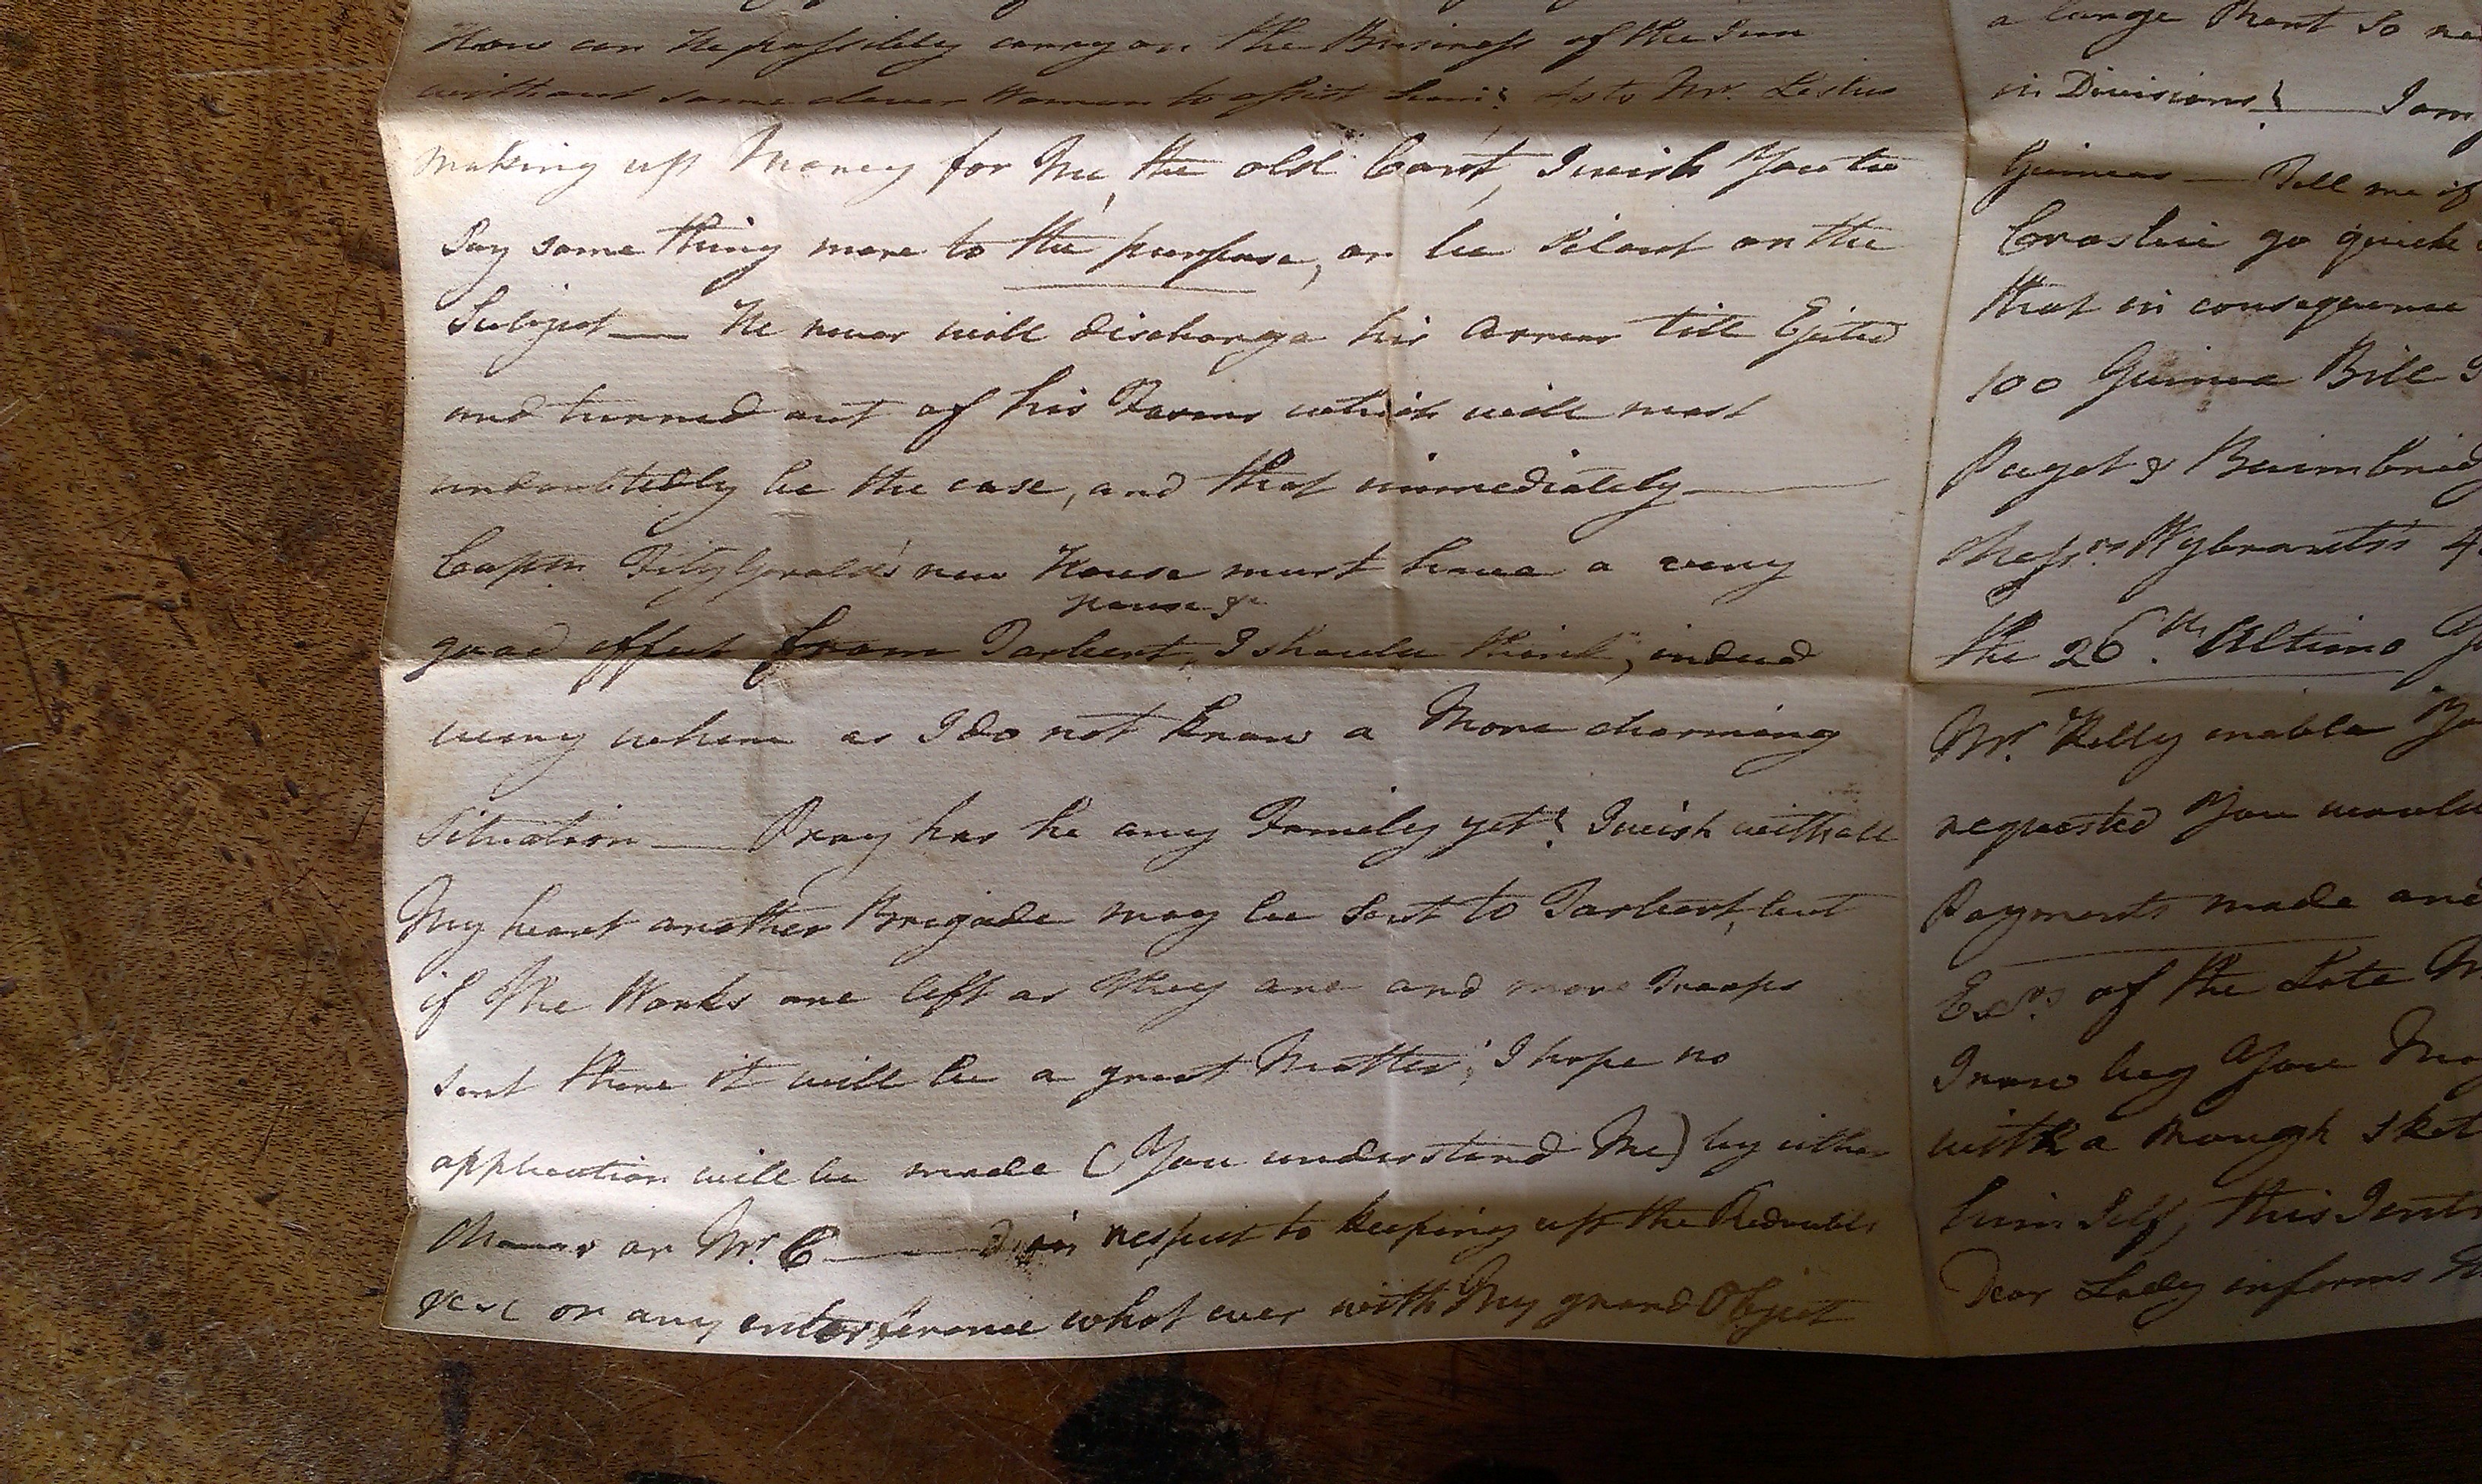 How can he possibly carry on the Business of the Inn
without some clever Woman to assist him? As to Mr. Leslies
making up Money for Me, the old Cant, I wish You to
Say some thing more to the purpose, or be Silent on the
Subject — He never will discharge his Arrear till Ejected
and turned out of his Farms which will most
undoubtedly be the case, and that immediately —
Captn. FitzGerald's new House must have a very
good effect from Tarbert House &c, I should think, indeed
every where as I do not know a More charming
Situation — Pray has he any Family yet? I wish with all
My heart another Brigade may be Sent to Tarbert, but
if the Works are left as they are and more Troops
sent there it will be a great Matter; I hope no
application will be made (You understand Me) by either
or Mr. C——d in respect to keeping up the Redoubts
&c &c or any enterference what ever with My grand Object
a large Rent So
in Divisions! — I am
Guineas — Tell me if
Croslie go quick
that in consequence
100 Guinea Bill
Paget & Baimbrid
Messrs. Wybrants's
the 26th. Ultimo
Mr. Kelly enable Yo
requested You would
Payments made and
Exrs. of the Late M
I now beg You
with a Rough Sket
him Self, this
Dear Lady informs